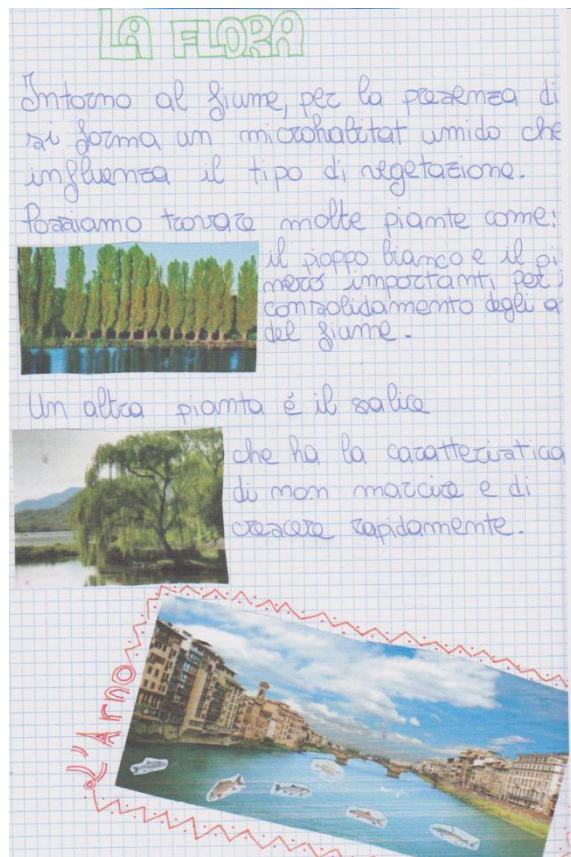 LA FLORA
Intorno al fiume, per la presenza di
si forma un microhabitat umido che
influenza il tipo di vegetazione.
Possiamo trovare molte piante come:
il pioppo bianco e il pi
nero importanti per
consolidamento degli a
del fiume.
Un altra pianta é il salice
che ha la caratteristica
di non marcire e di
crescere rapidamente.
L'Arno